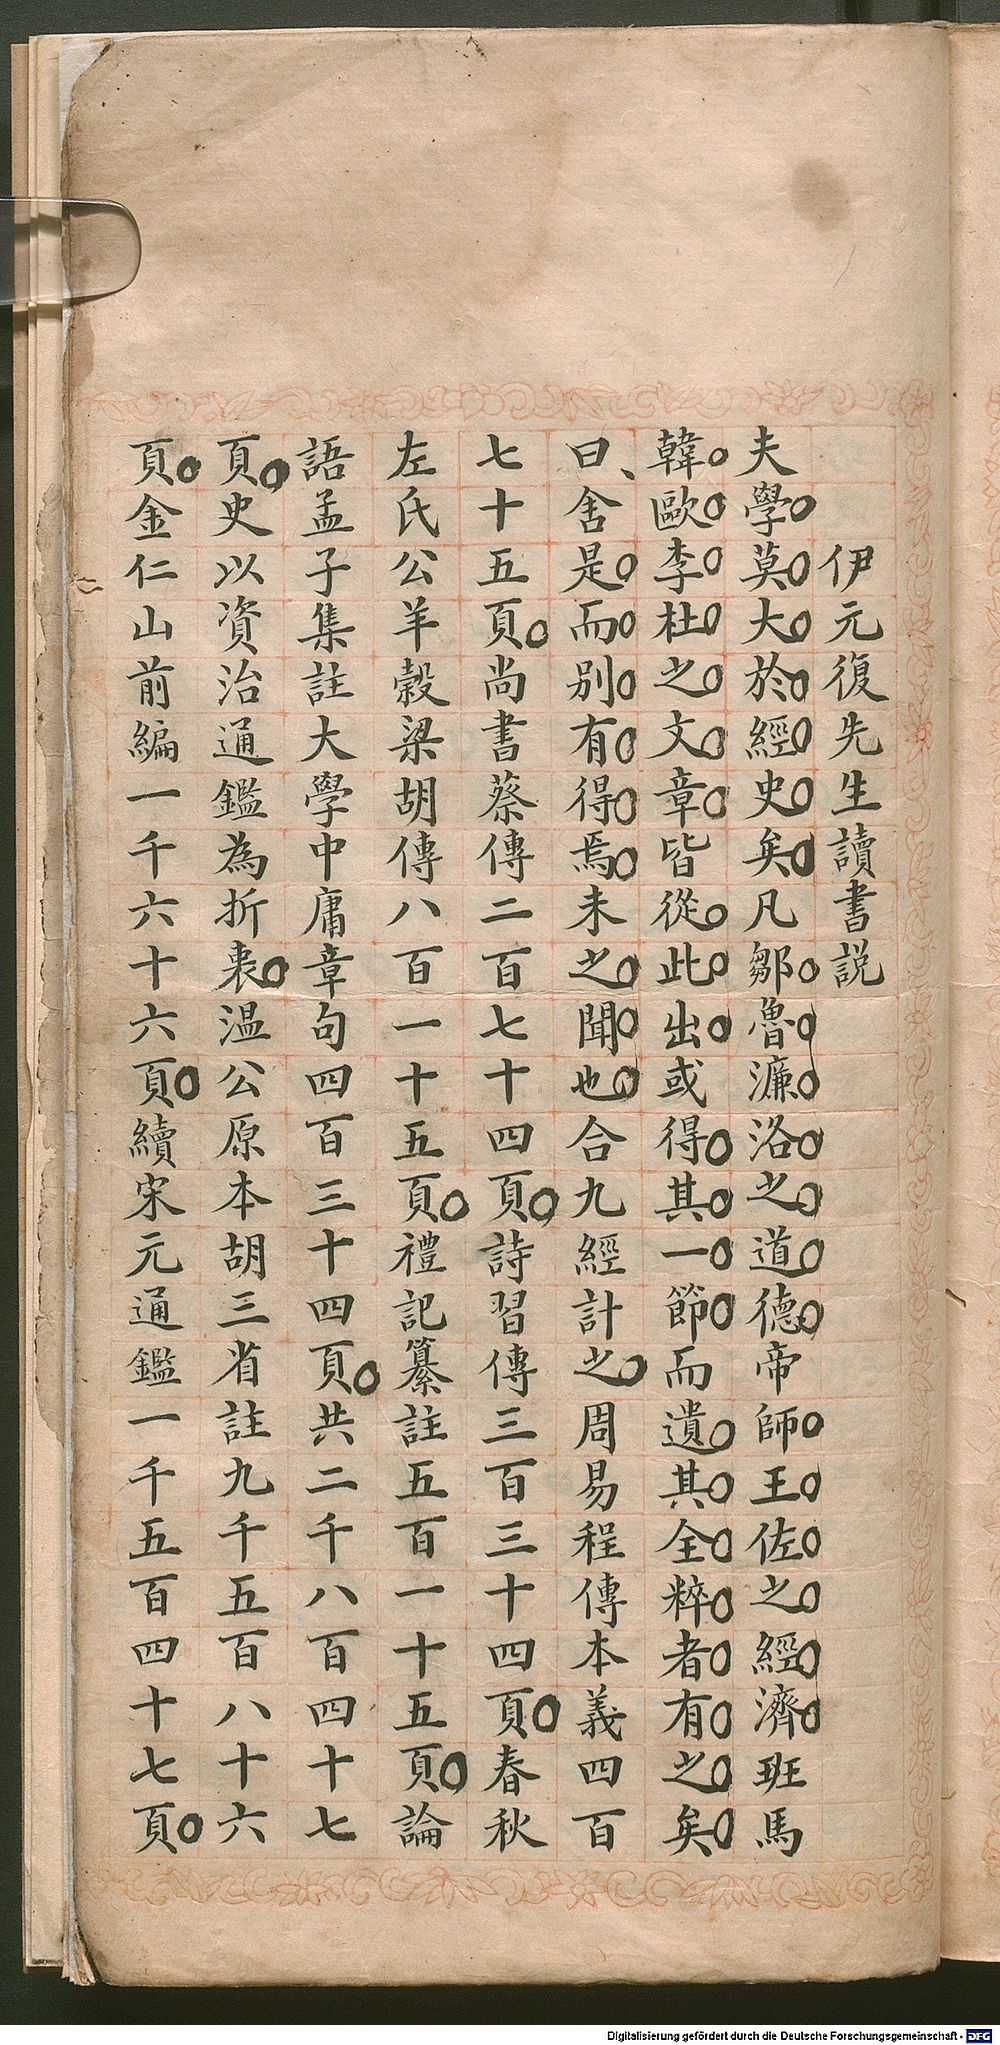 伊元復先生讀書説
夫學莫大於經史矣凡鄒魯濂洛之道德帝師王佐之經濟班馬
韓歐李杜之文章皆從此出或得其一節而遺其全粹者有之矣
曰舍是而别有得焉未之聞也合九經計之周易程傳本義四百
七十五頁尚書蔡傳二百七十四頁詩習傳三百三十四頁春秋
左氏公羊穀梁胡傳八百一十五頁禮記纂註五百一十五頁論
語孟子集註大學中庸章句四百三十四頁共二千八百四十七
頁史以資治通鑑為折衷温公原本胡三省註九千五百八十六
頁金仁山前編一千六十六頁續宋元通鑑一千五百四十七頁
Digitalisierung gefördert durch die Deutsche Forschungsgemeinschaft - DFG